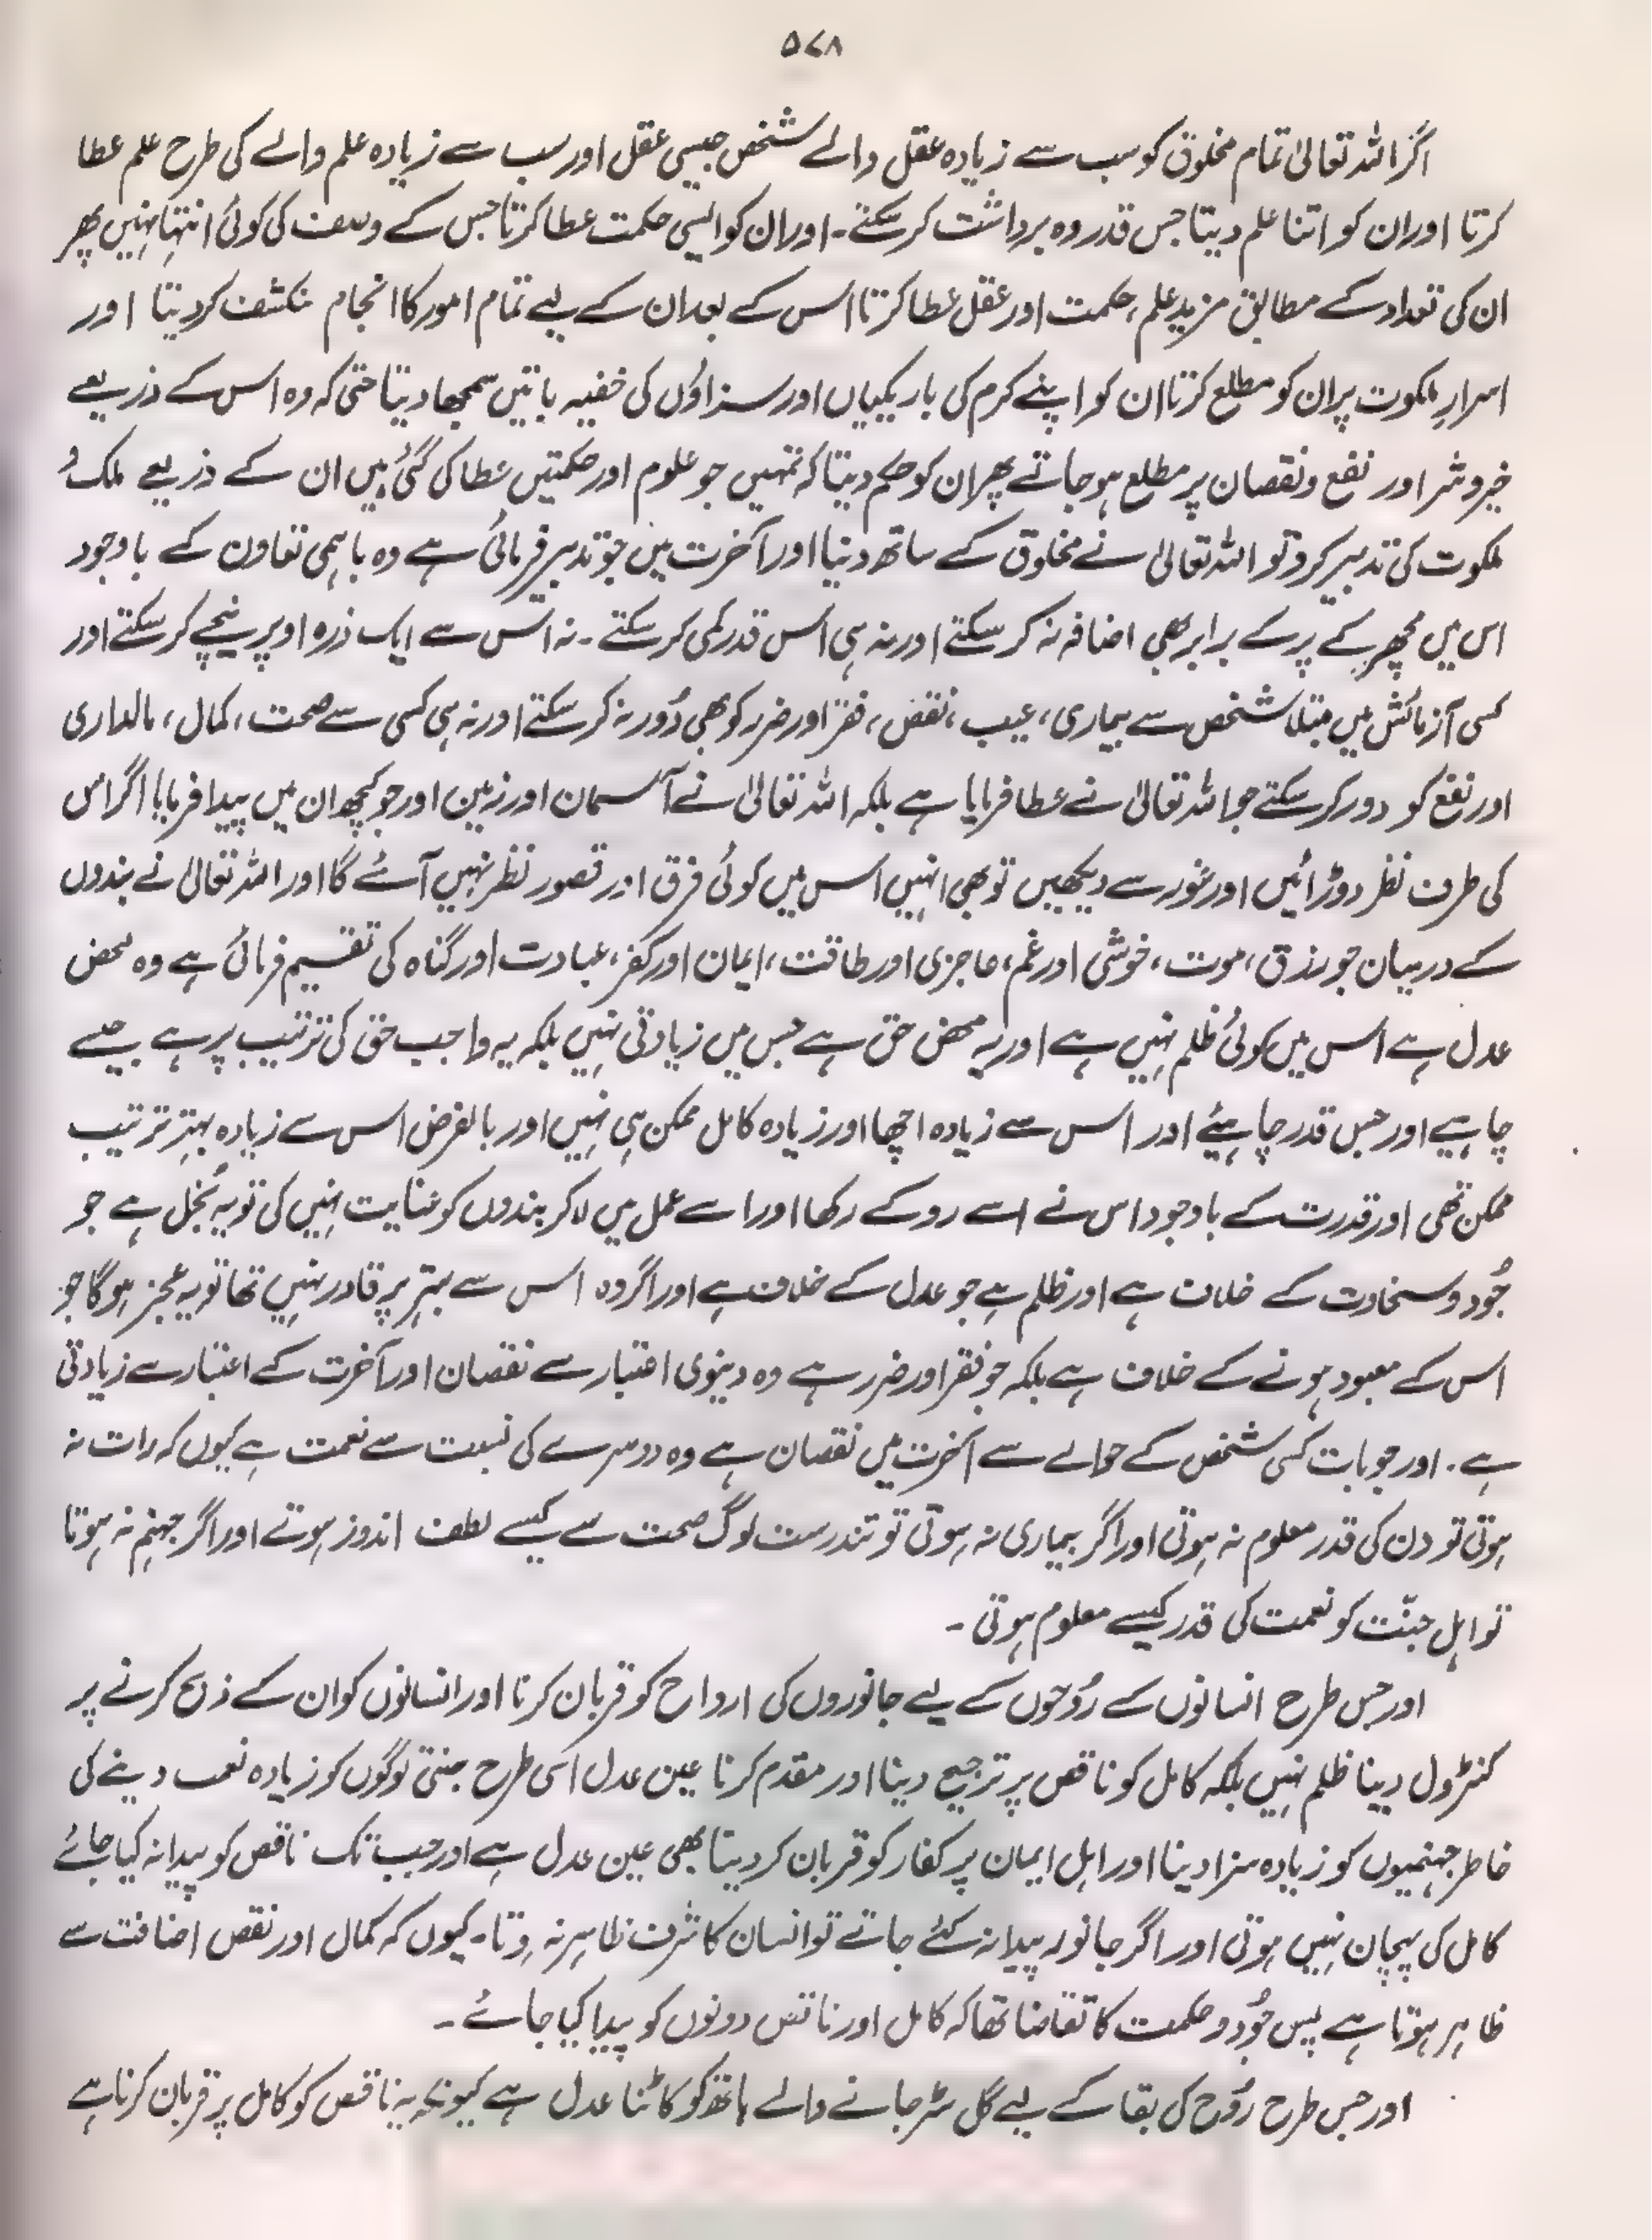 ۵۷۸
اگر اللہ تعالیٰ تمام مخلوق کو سب سے زیادہ عقل والے شخص جیسی عقل اور سب سے زیادہ علم والے کی طرح علم عطا
کرتا اور ان کو اتنا علم دیتا جس قدر وہ برداشت کر سکتے۔ اور ان کو ایسی حکمت عطا کرتا جس کے وصف کی کوئی انتہا نہیں پھر
ان کی تعداد کے مطابق مزید علم، حکمت اور عقل عطا کرتا اس کے بعد ان کے لیے تمام امور کا انجام منکشف کر دیتا اور
اسرارِ ملکوت پر ان کو مطلع کرتا ان کو اپنے کرم کی باریکیاں اور سزاؤں کی خفیہ باتیں سمجھا دیتا حتیٰ کہ وہ اس کے ذریعے
خیر و شر اور نفع و نقصان پر مطلع ہو جاتے پھر ان کو حکم دیتا کہ تمہیں جو علوم اور حکمتیں عطا کی گئی ہیں ان کے ذریعے ملک و
ملکوت کی تدبیر کرو تو اللہ تعالیٰ نے مخلوق کے ساتھ دنیا اور آخرت میں جو تدبیر فرمائی ہے وہ باہمی تعاون کے باوجود
اس میں مچھر کے پر کے برابر بھی اضافہ نہ کر سکتے اور نہ ہی اس قدر کمی کر سکتے۔ نہ اس سے ایک ذرہ اوپر نیچے کر سکتے اور
کسی آزمائش میں مبتلا شخص سے بیماری، عیب، نقص، فقر اور ضرر کو بھی دُور نہ کر سکتے اور نہ ہی کسی سے صحت، کمال، مالداری
اور نفع کو دور کر سکتے جو اللہ تعالیٰ نے عطا فرمایا ہے بلکہ اللہ تعالیٰ نے آسمان اور زمین اور جو کچھ ان میں پیدا فرمایا اگر اس
کی طرف نظر دوڑائیں اور غور سے دیکھیں تو بھی انہیں اس میں کوئی فرق اور قصور نظر نہیں آئے گا اور اللہ تعالیٰ نے بندوں
کے درمیان جو رزق، موت، خوشی اور غم، عاجزی اور طاقت، ایمان اور کفر، عبادت اور گناہ کی تقسیم فرمائی ہے وہ محض
عدل ہے اس میں کوئی ظلم نہیں ہے اور یہ محض حق ہے جس میں زیادتی نہیں بلکہ یہ واجب حق کی ترتیب پر ہے جیسے
چاہیے اور جس قدر چاہیئے اور اس سے زیادہ اچھا اور زیادہ کامل ممکن ہی نہیں اور بالفرض اس سے زیادہ بہتر ترتیب
ممکن تھی اور قدرت کے باوجود اس نے اسے روکے رکھا اور اسے عمل میں لا کر بندوں کو عنایت نہیں کی تو یہ بُخل ہے جو
جُود و سخاوت کے خلاف ہے اور ظلم ہے جو عدل کے خلاف ہے اور اگر وہ اس سے بہتر پر قادر نہیں تھا تو یہ عجز ہوگا جو
اس کے معبود ہونے کے خلاف ہے بلکہ جو فقر اور ضرر ہے وہ دینوی اعتبار سے نقصان اور آخرت کے اعتبار سے زیادتی
ہے۔ اور جو بات کسی شخص کے حوالے سے آخرت میں نقصان ہے وہ دوسرے کی نسبت سے نعمت ہے کیوں کہ رات نہ
ہوتی تو دن کی قدر معلوم نہ ہوتی اور اگر بیماری نہ ہوتی تو تندرست لوگ صحت سے کیسے لطف اندوز ہوتے اور اگر جہنم نہ ہوتا
تو اہل جنّت کو نعمت کی قدر کیسے معلوم ہوتی۔
اور جس طرح انسانوں کے رُوحوں کے لیے جانوروں کی ارواح کو قربان کرنا اور انسانوں کو ان کے ذبح کرنے پر
کنٹرول دینا ظلم نہیں بلکہ کامل کو ناقص پر ترجیح دینا اور مقدم کرنا عین عدل اسی طرح جنتی لوگوں کو زیادہ نعمت دینے کی
خاطر جہنمیوں کو زیادہ سزا دینا اور اہل ایمان پر کفار کو قربان کر دینا بھی عین عدل ہے اور جب تک ناقص کو پیدا نہ کیا جائے
کامل کی پہچان نہیں ہوتی اور اگر جانور پیدا نہ کئے جاتے تو انسان کا شرف ظاہر نہ ہوتا۔ کیوں کہ کمال اور نقص اضافت سے
ظاہر ہوتا ہے پس جُود و حکمت کا تقاضا تھا کہ کامل اور ناقص دونوں کو پیدا کیا جائے۔
اور جس طرح رُوح کی بقا کے لیے گل سڑ جانے والے ہاتھ کو کاٹنا عدل ہے کیونکہ یہ ناقص کو کامل پر قربان کرنا ہے